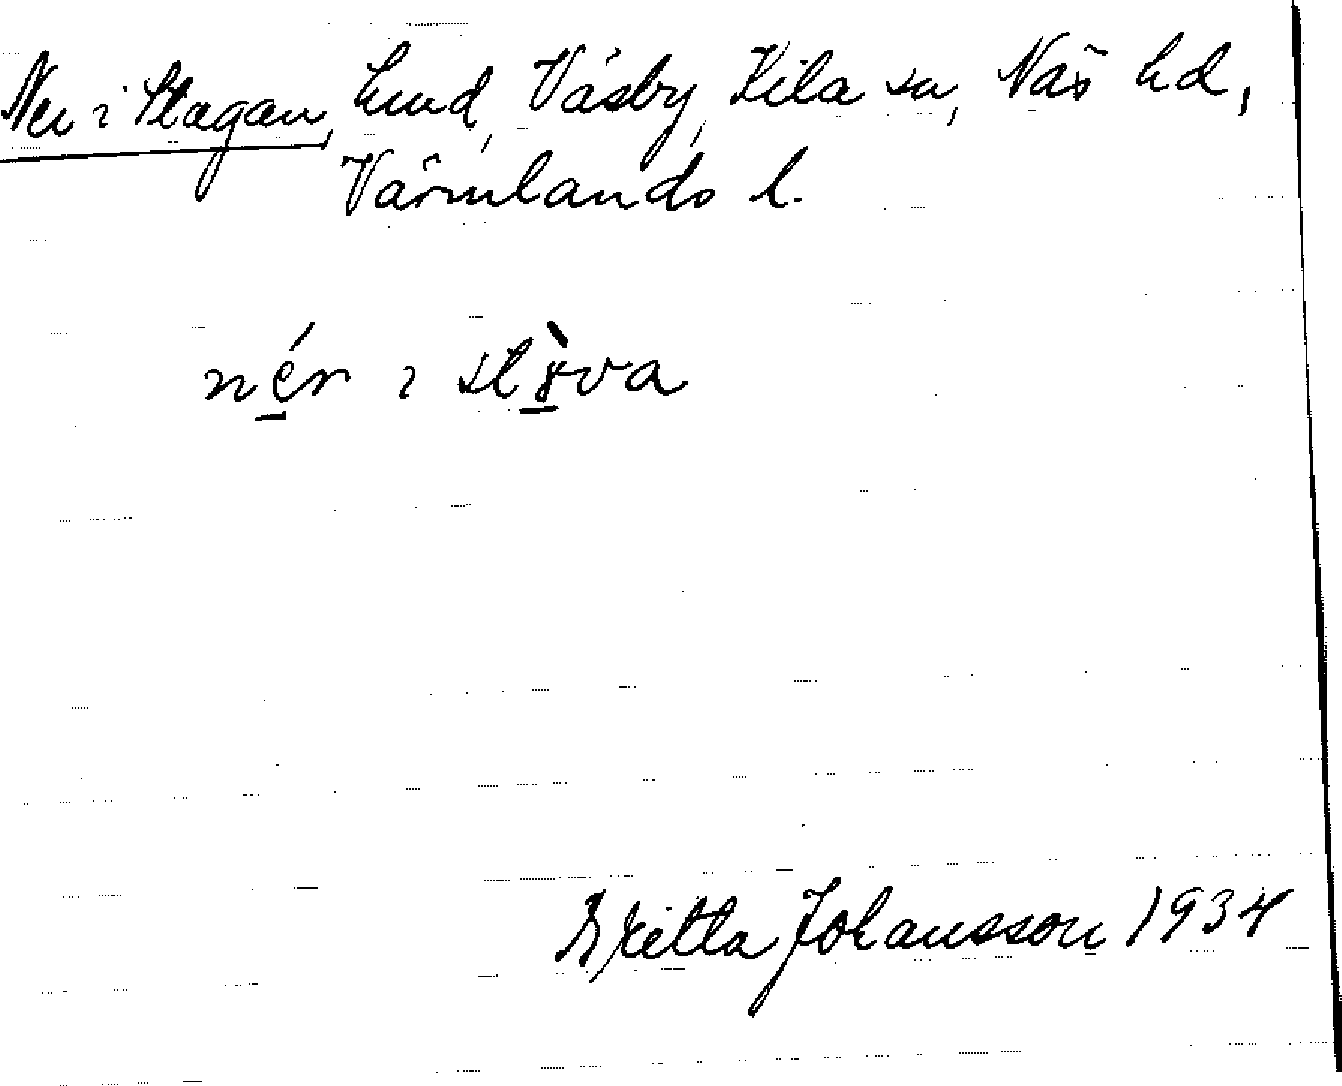 Ner i Stagan, lund, Väsby, Kila sn, Näs hd,
Värmlands l.
nér i stɤ̀va
Britta Johansson 1934